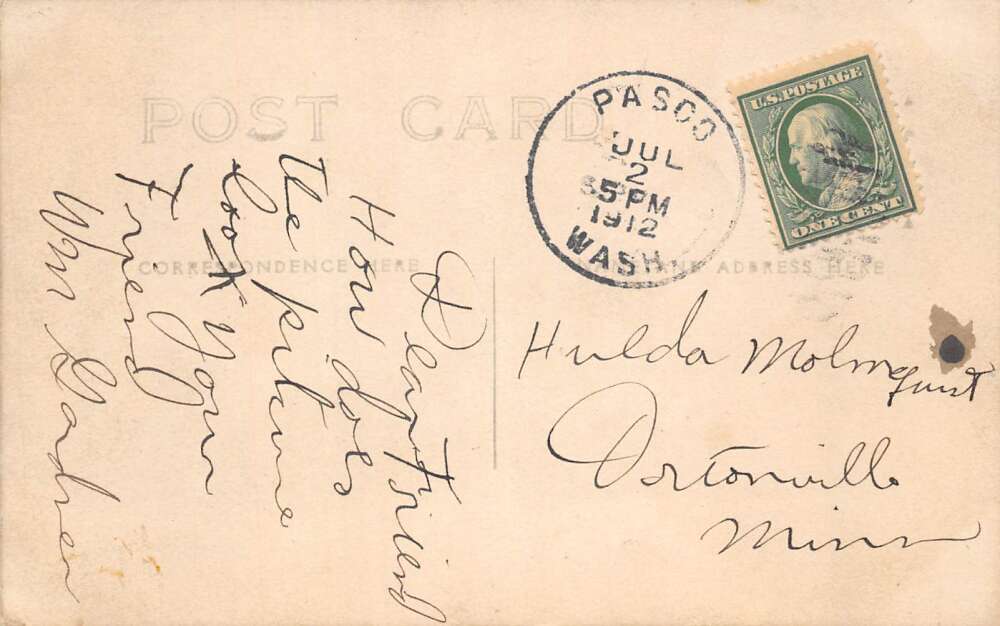 POST CARD
CORRESPONDENCE HERE
ADDRESS HERE
PASCO
JUL
2
5 PM
1912
WASH.
U.S. POSTAGE
ONE CENT
Dear Friend
How does
the picture
look Your
Friend
Wm
Hulda Molmquist
Ortonville
Minn